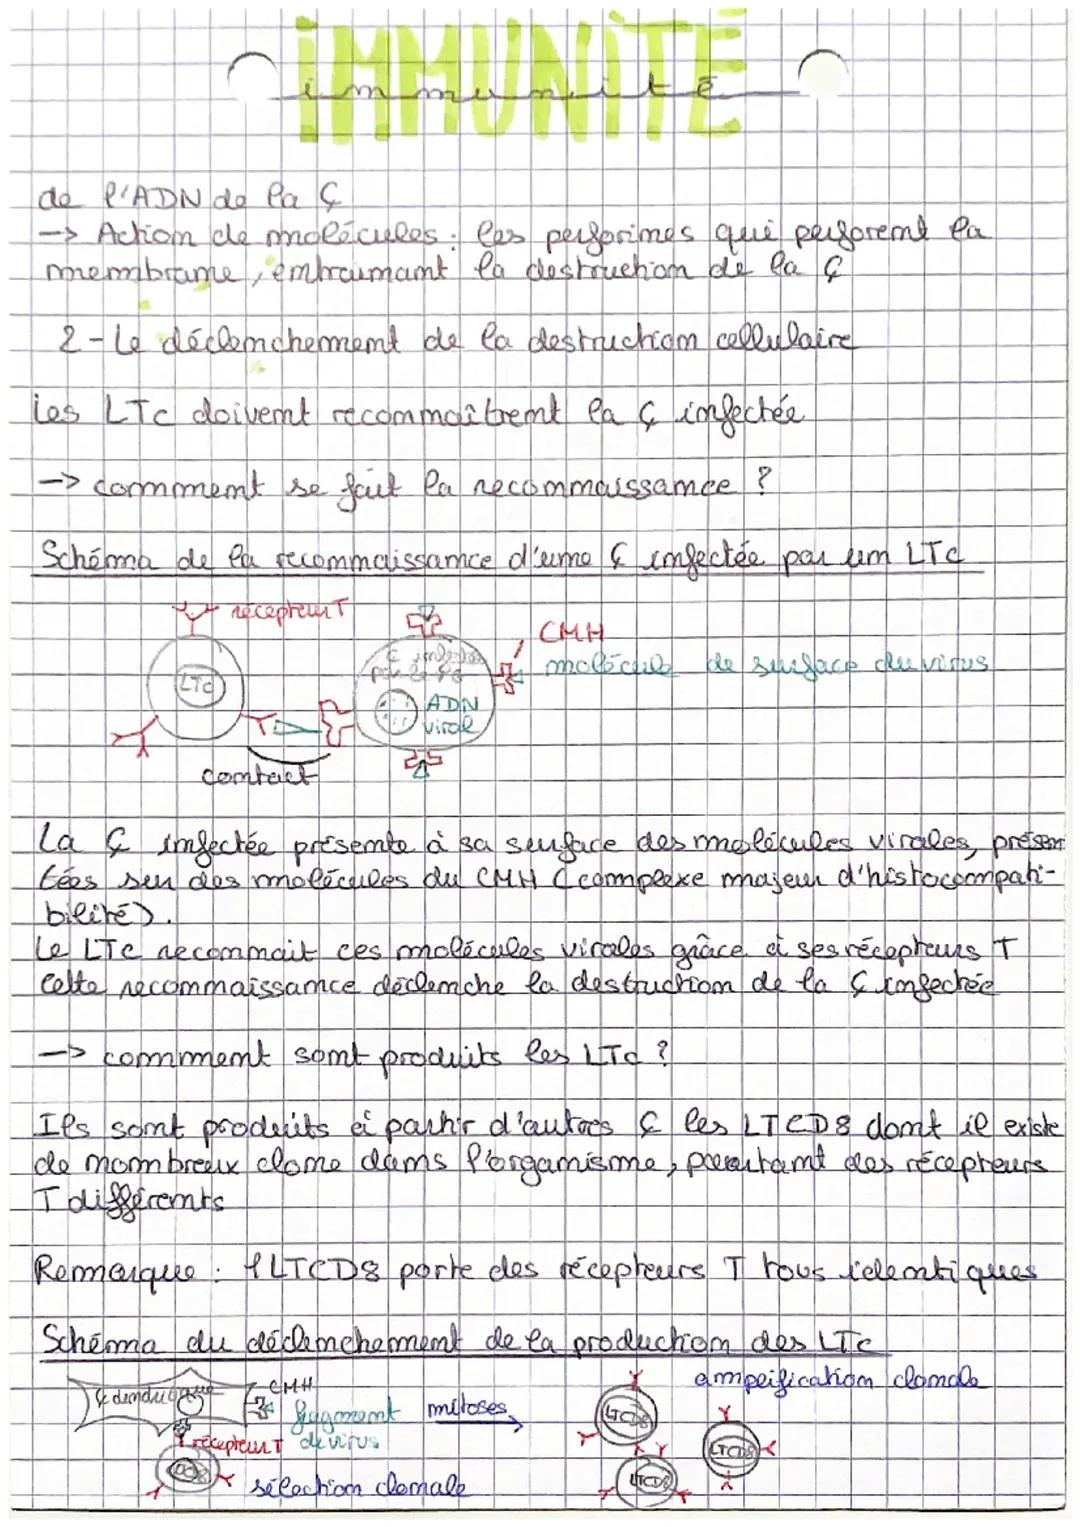 IMMUNITÉ
immunité
de l'ADN de la Ç
-> Action de molécules : les perforines qui perforent la
membrane, entraînant la destruction de la Ç
2 - Le déclenchement de la destruction cellulaire
Les LTc doivent reconnaîtrent la Ç infectée
-> comment se fait la reconnaissance ?
Schéma de la reconnaissance d'une Ç infectée par un LTc
récepteur T
CMH
Ç infectée
molécule de surface du virus
LTc
ADN
viral
contact
La Ç infectée présente à sa surface des molécules virales, présen
tées sur des molécules du CMH (complexe majeur d'histocompati-
bilité).
Le LTc reconnait ces molécules virales grâce à ses récepteurs T
Cette reconnaissance déclenche la destruction de la Ç infectée
-> comment sont produits les LTc ?
Ils sont produits à partir d'autres Ç les LTCD8 dont il existe
de nombreux clone dans l'organisme, portant des récepteurs
T différents
Remarque : 1 LTCD8 porte des récepteurs T tous identiques
Schéma du déclenchement de la production des LTc
amplification clonale
Ç dendritique
CMH
fragment
de virus
mitoses
récepteur T
LTCD8
LTCD8
LTCD8
sélection clonale